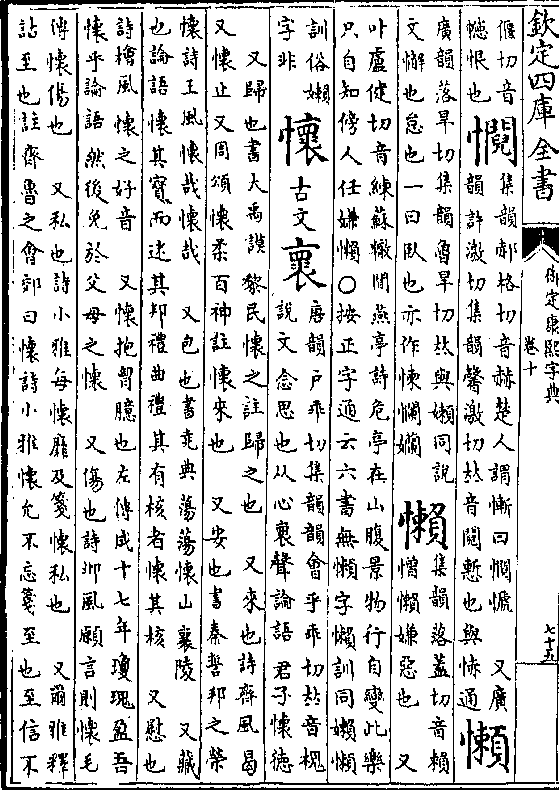 欽定四庫全書
御定康熙字典
卷十
七十五
偃切音
憾恨也
集韻郝格切音赫楚人謂慚曰 又廣
韻許激切集韻馨激切𠀤音鬩慙也與㤸通
懶
廣韻落旱切集韻魯旱切𠀤與嬾同說
文懈也怠也一曰臥也亦作
懶
集韻落蓋切音賴
憎懶嫌惡也 又
叶盧健切音練蘇轍閒燕亭詩危亭在山腹景物行自變此樂
只自知傍人任嫌懶○按正字通云六書無懶字懶訓同嬾懶
訓俗嬾
字非
懷
古文褱
唐韻戶乖切集韻韻會乎乖切𠀤音槐
說文念思也从心褱聲論語君子懷德
又歸也書大禹謨黎民懷之註歸之也 又來也詩齊風曷
又懷止又周頌懷柔百神註懷來也 又安也書秦誓邦之榮
懷詩王風懷哉懷哉 又包也書堯典蕩蕩懷山襄陵 又藏
也論語懷其寶而迷其邦禮曲禮其有核者懷其核 又慰也
詩檜風懷之好音 又懷抱胷臆也左傳成十七年瓊瑰盈吾
懷乎論語然後免於父母之懷 又傷也詩邶風願言則懷毛
傳懷傷也 又私也詩小雅每懷靡及箋懷私也 又爾雅釋
詁至也註齊魯之會郊曰懷詩小雅懷允不忘箋至也至信不